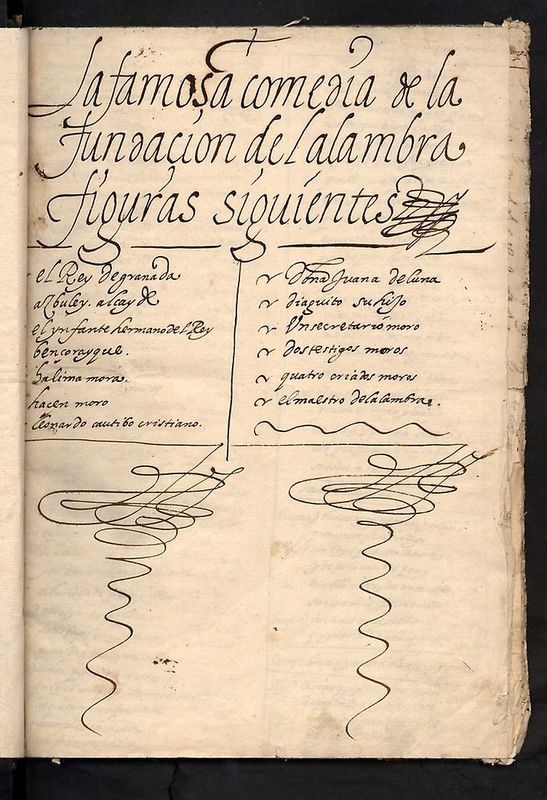 La famosa comedia de la
fundaçion del alambra
figuras siguientes
el Rey de granada
azbuley. alcayde
el ynfante hermano del Rey
bençorayque.
halima mora.
haçen moro
leonardo cautibo cristiano.
Doña Juana de luna
diaguito su hijo
Un secretario moro
dos testigos moros
quatro criados moros
el maestro del alambra.